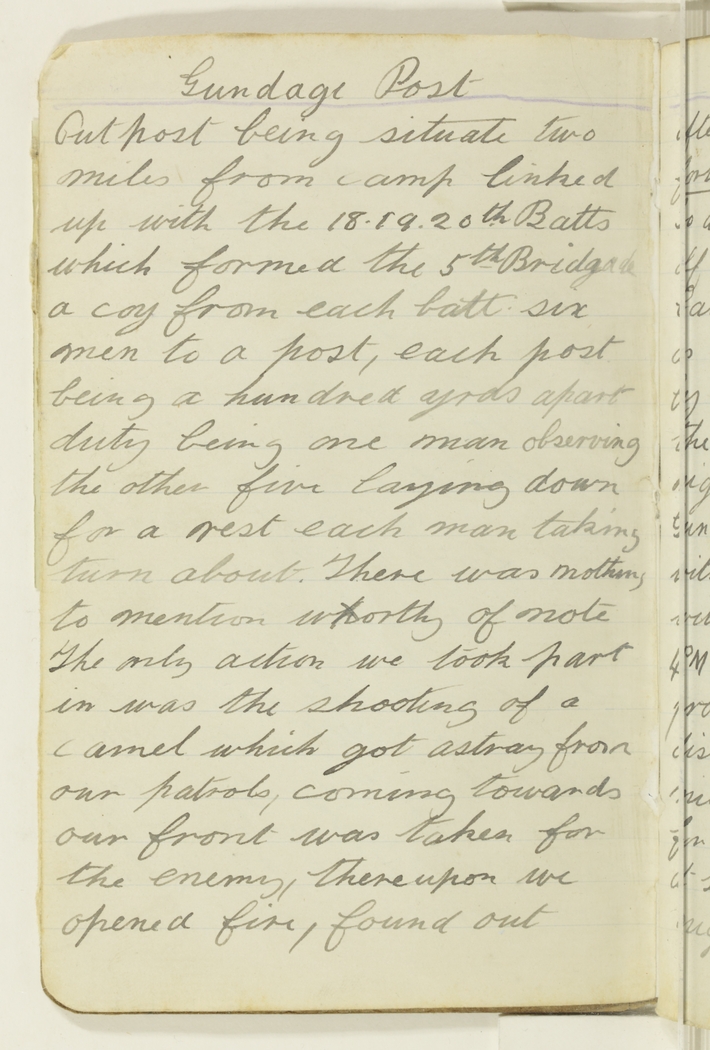 Gundage Post
Outpost being situate two
miles from camp linked
up with the 18.19.20th Batts
which formed the 5th Bridgade
a coy from each batt. six
men to a post, each post
being a hundred yrds apart
duty being one man observing
the other five laying down
for a rest each man taking
turn about. There was nothing
to mention worthy of note
The only action we took part
in was the shooting of a
camel which got astray from
our patrols, coming towards
our front was taken for
the enemy, thereupon we
opened fire, found out